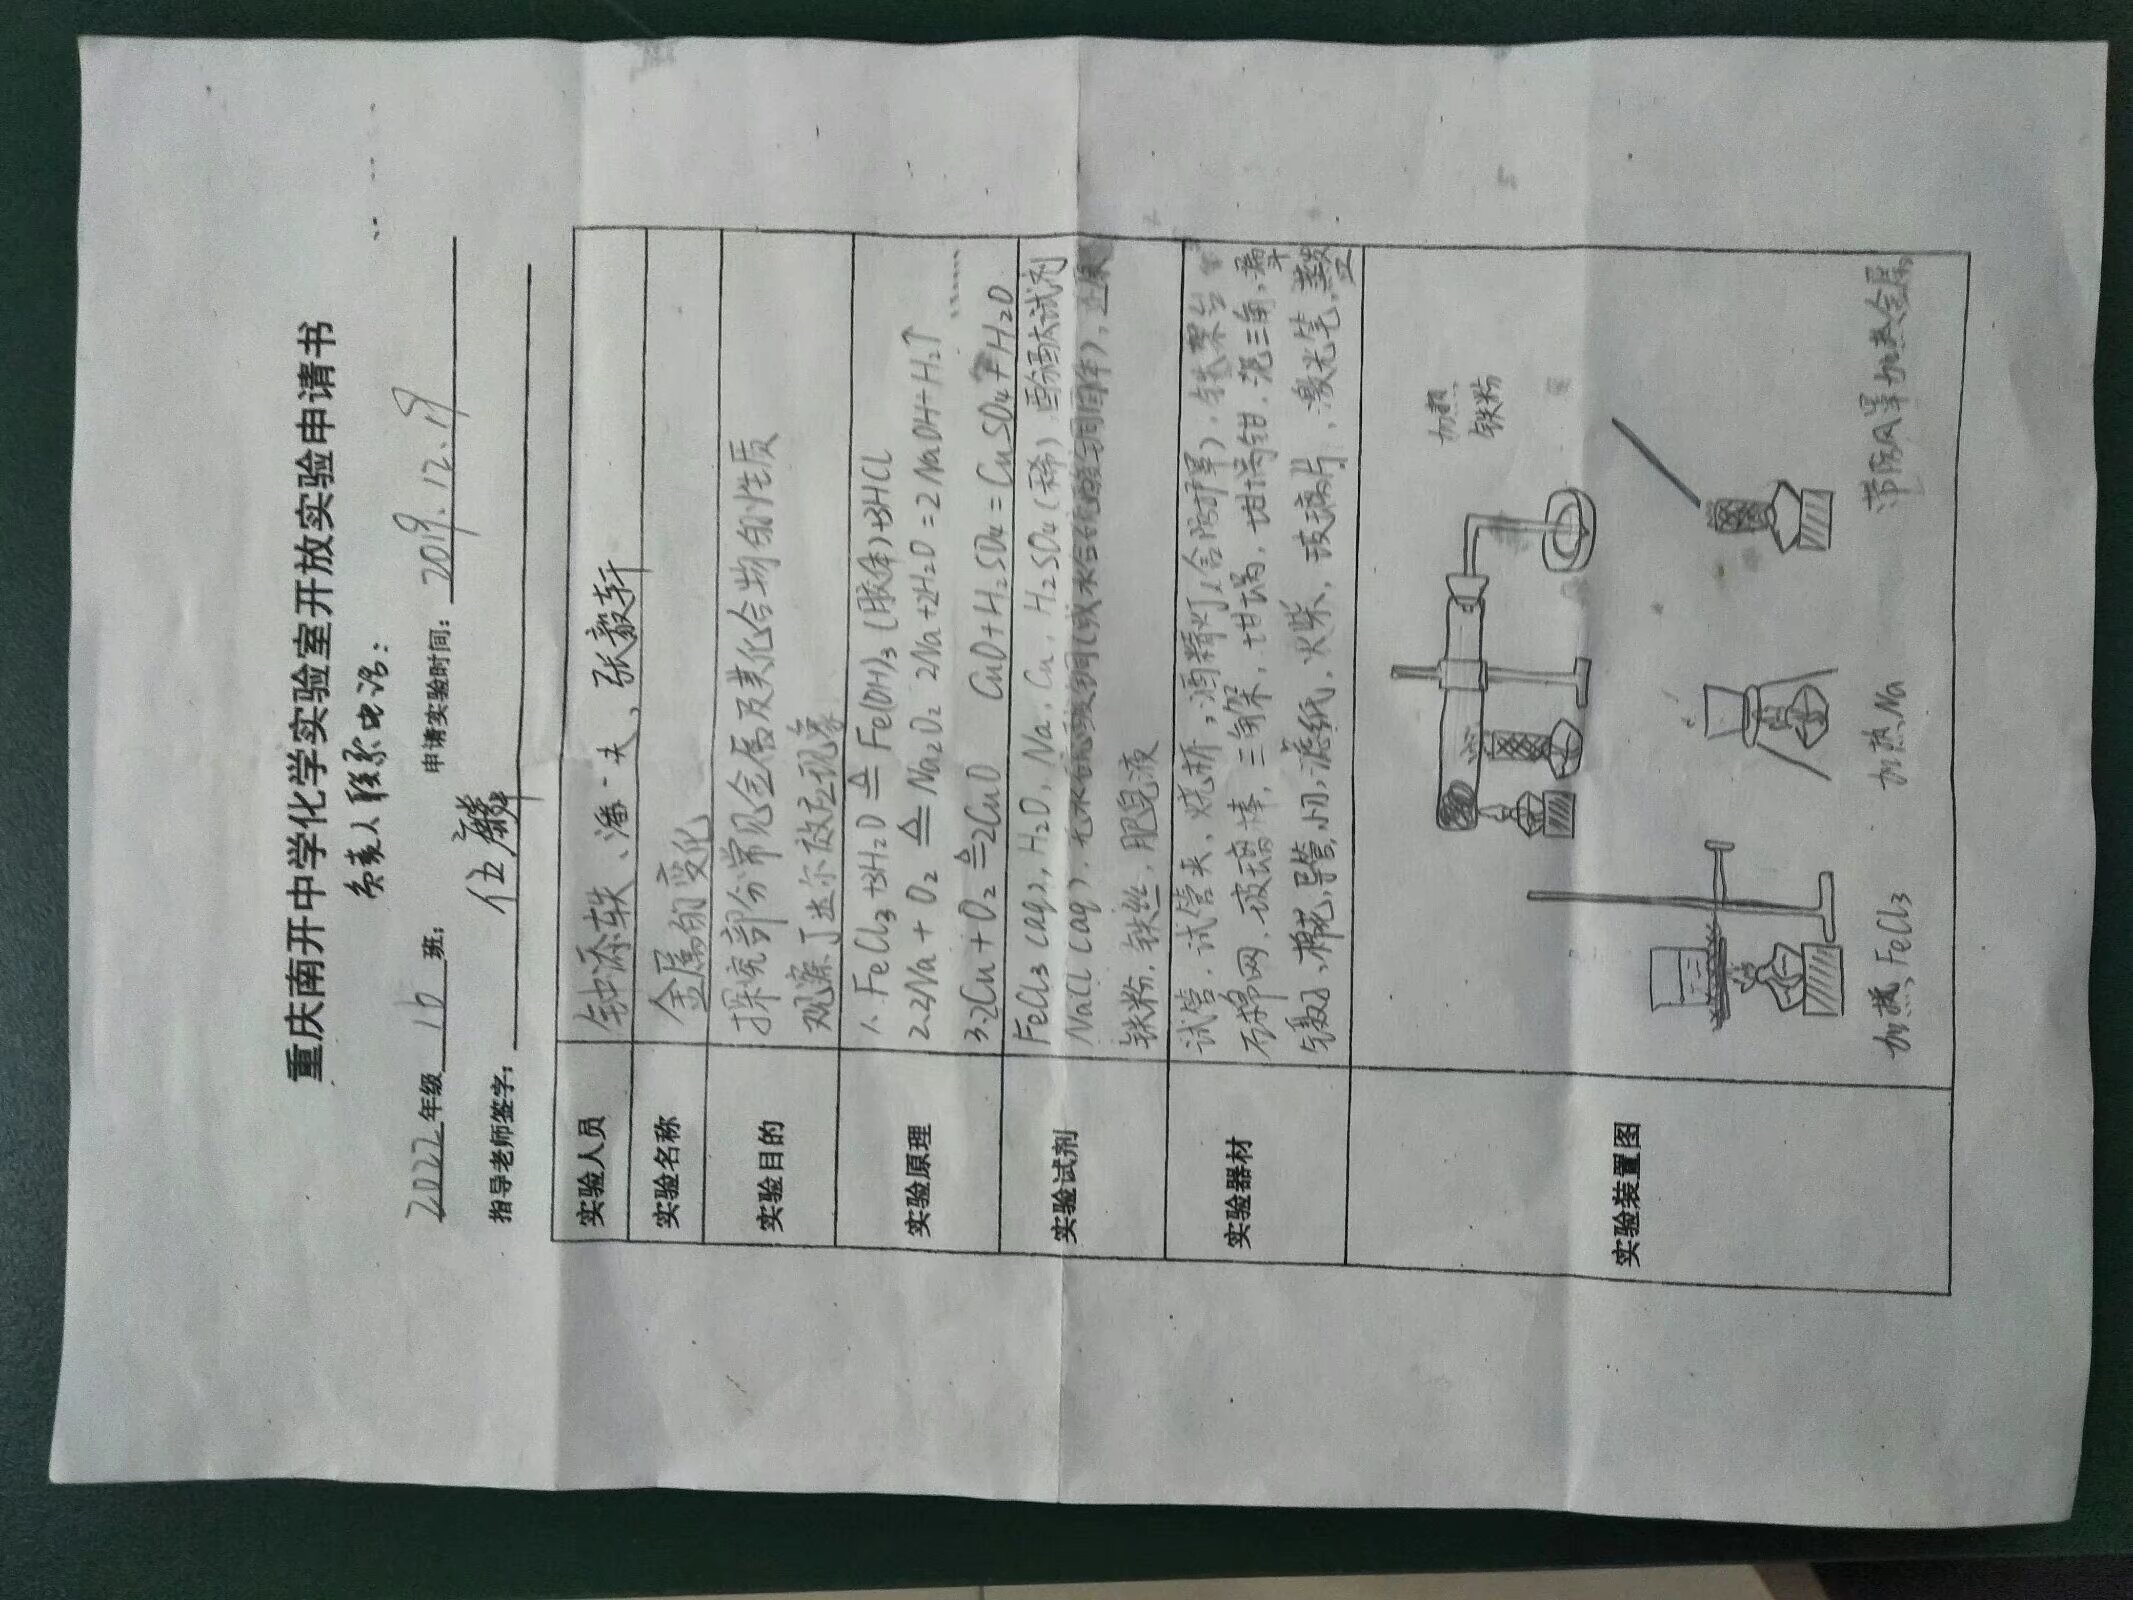 重庆南开中学化学实验室开放实验申请书
负责人联系电话:
2022年级 10 班: 申请实验时间: 2019.12.19
指导老师签字: 伍麟
实验人员 钟添轶、潘一夫、张毅轩
实验名称 金属的变化
实验目的 探究部份常见金属及其化合物的性质
观察丁达尔效应现象
实验原理 1. FeCl3+3H2O ≜ Fe(OH)3 (胶体)+3HCl
2. 2Na + O2 ≜ Na2O2 2Na+2H2O=2NaOH+H2↑
3. 2Cu + O2 ≜ 2CuO CuO+H2SO4=CuSO4+H2O ……
实验试剂 FeCl3 (aq), H2O, Na, Cu, H2SO4 (稀), 酚酞试剂
NaCl (aq),
铁粉, 铁丝, 肥皂液
实验器材 试管, 试管夹, 烧杯, 酒精灯(含防风罩), 铁架台
石棉网, 玻璃棒, 三角架, 坩埚, 坩埚钳, 泥三角, 漏斗
镊子, 棉花, 导管, 小刀, 滤纸, 火柴, 玻璃片, 激光笔, 蒸发皿
实验装置图
加热
铁粉
加热 FeCl3 加热 Na 带防风罩加热金属